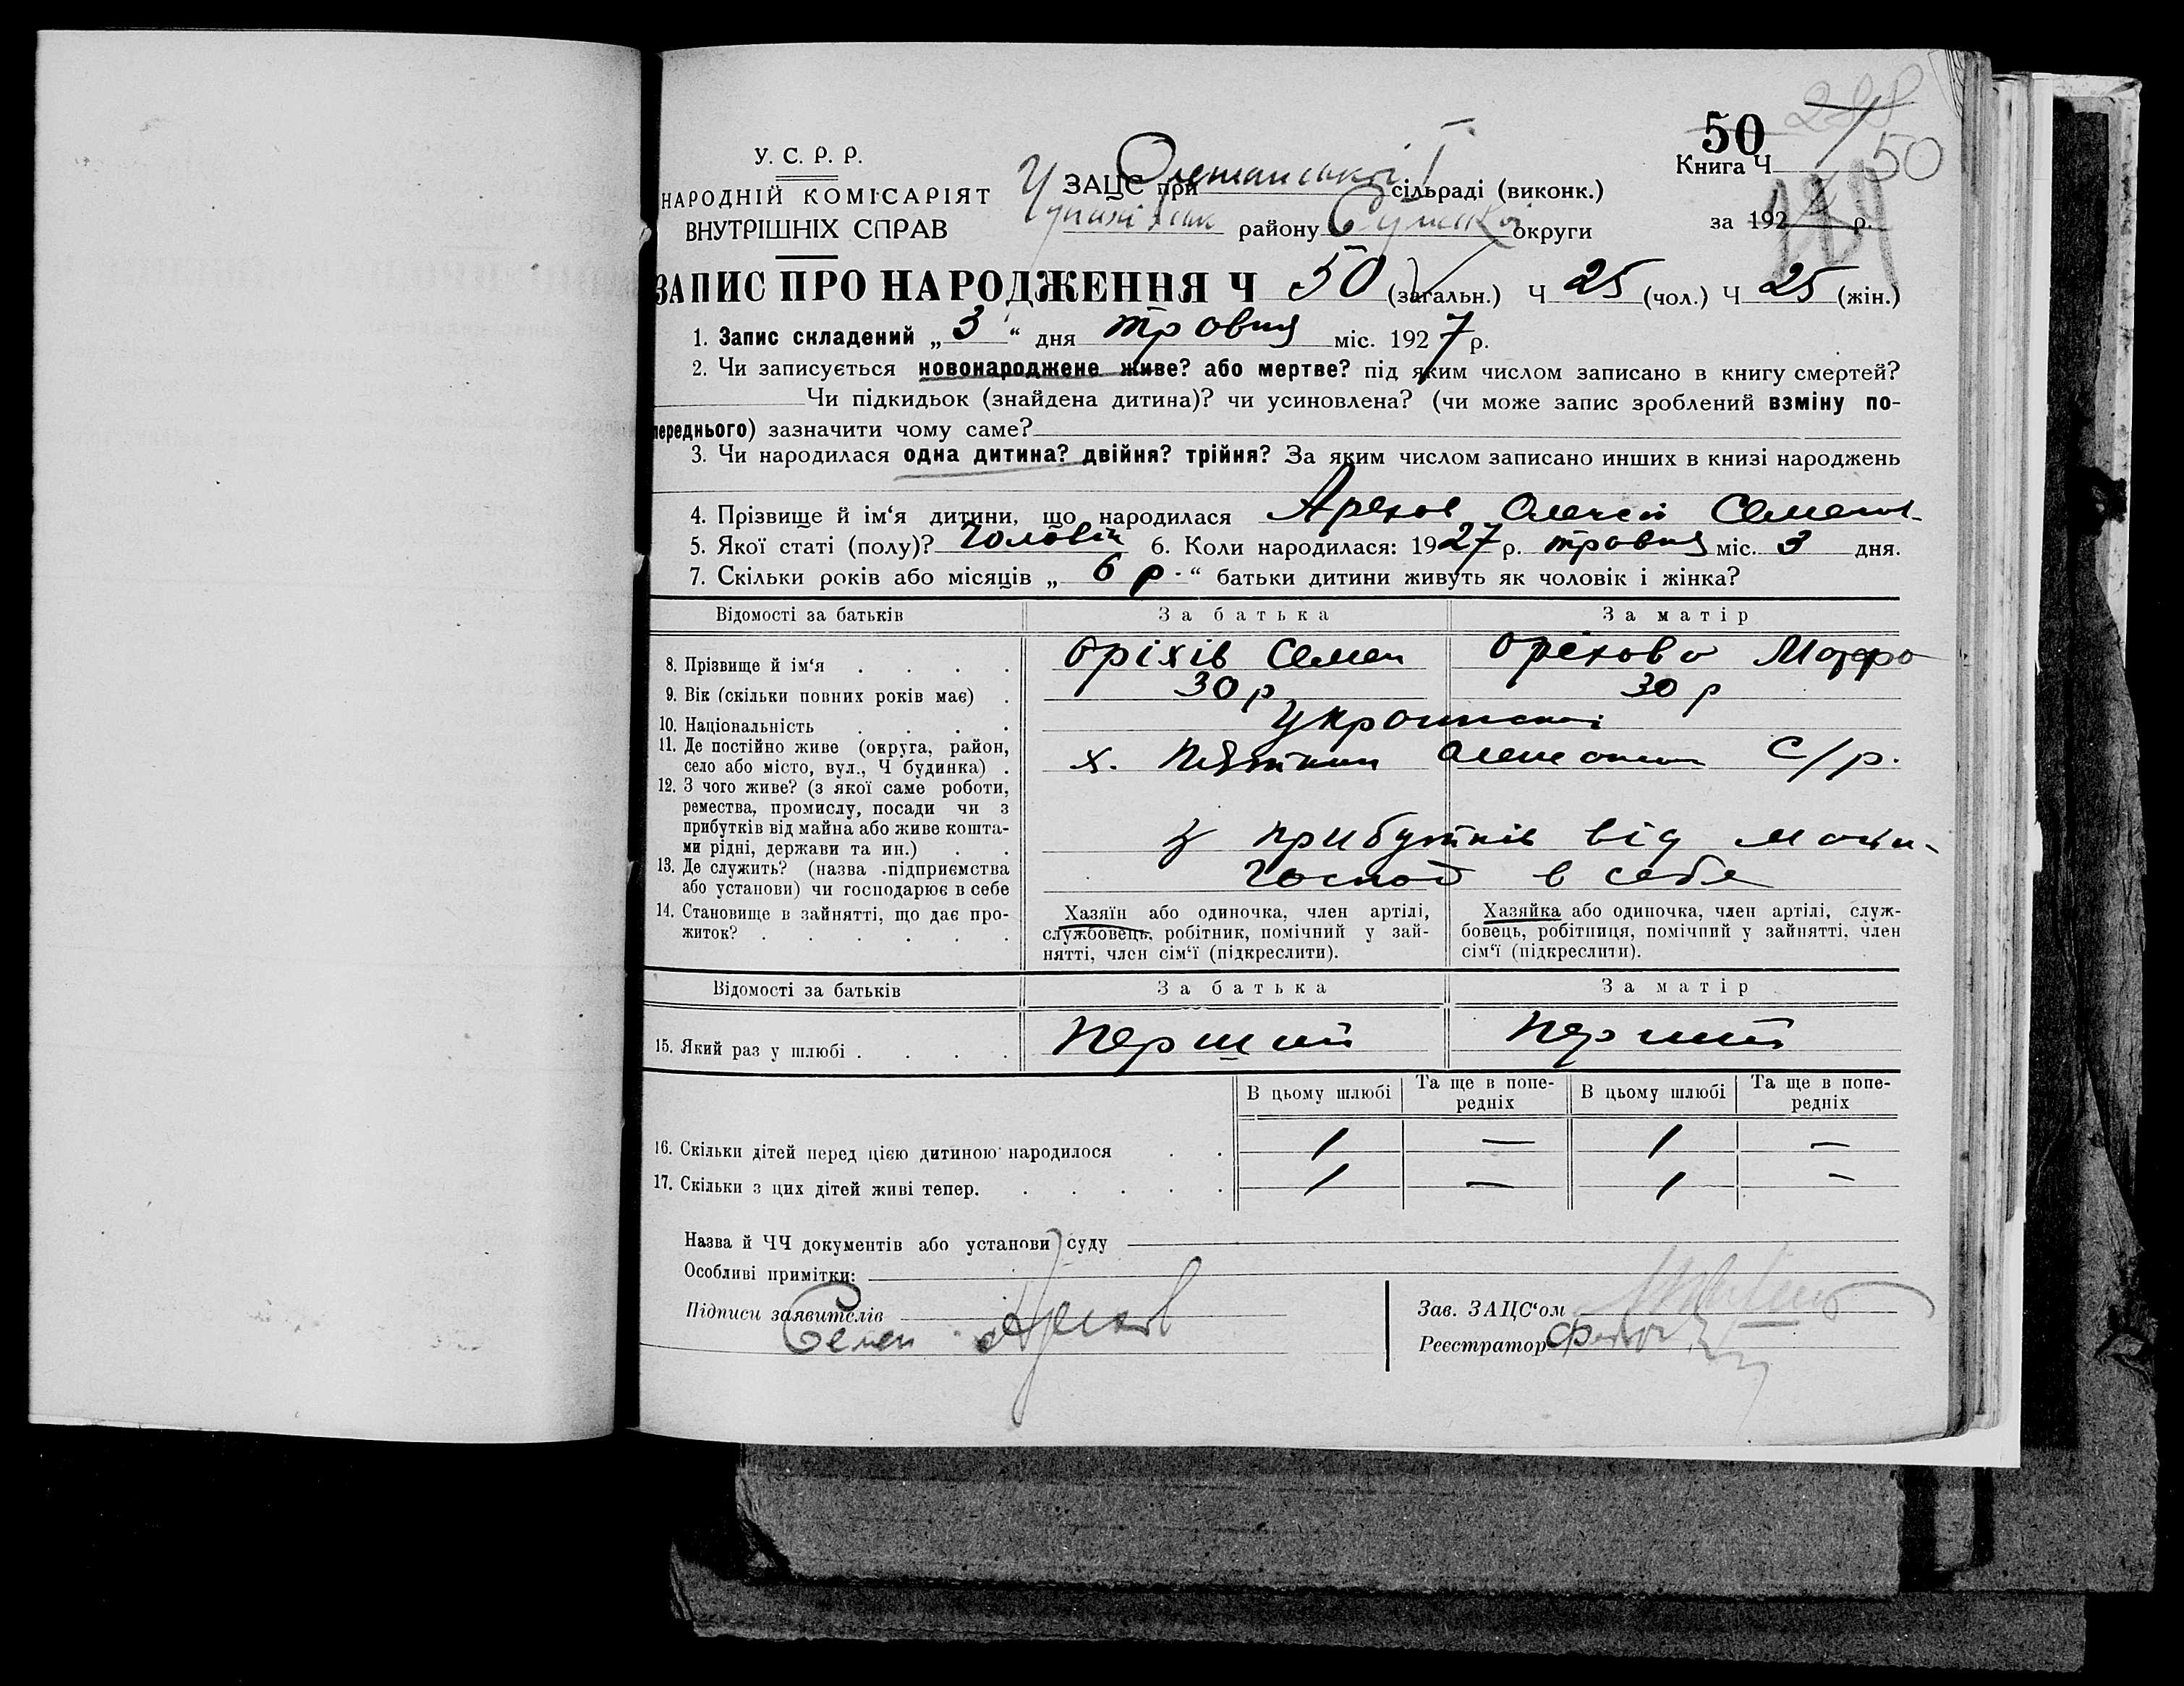 50 288
50
У. С. Р. Р.
НАРОДНІЙ КОМІСАРІЯТ
ВНУТРІШНІХ СПРАВ
ЗАЦС при сільраді (виконк.)
району Сумської округи
Книга Ч
за 192 р.
ЗАПИС ПРО НАРОДЖЕННЯ Ч 50 (загальн.) Ч 25 (чол.) Ч 25 (жін.)
1. Запис складений „ 3 “ дня травня міс. 1927 р.
2. Чи записується новонароджене живе? або мертве? під яким числом записано в книгу смертей?
Чи підкидьок (знайдена дитина)? чи усиновлена? (чи може запис зроблений взміну по-
переднього) зазначити чому саме?
3. Чи народилася одна дитина? двійня? трійня? За яким числом записано инших в книзі народжень
4. Прізвище й ім‘я дитини, що народилася Арехов Олексій Семенов-
5. Якої статі (полу)? Чоловіч 6. Коли народилася: 1927 р. травня міс. 3 дня.
7. Скільки років або місяців „ 6 р. “ батьки дитини живуть як чоловік і жінка?
Відомості за батьків За батька За матір
8. Прізвище й ім‘я . . . . Оріхів Семен Орехова Мотро
9. Вік (скільки повних років має) . 30 р 30 р
10. Національність . . . . Украинської
11. Де постійно живе (округа, район,
село або місто, вул., Ч будинка) . х. С/р.
12. З чого живе? (з якої саме роботи,
ремества, промислу, посади чи з
прибутків від майна або живе кошта-
ми рідні, держави та ин.) . . з прибутків від
13. Де служить? (назва підприємства
або установи) чи господарює в себе Господ в себе
14. Становище в зайнятті, що дає про-
житок? . . . . . .
Хазяїн або одиночка, член артілі,
службовець, робітник, помічний у зай-
нятті, член сім‘ї (підкреслити).
Хазяйка або одиночка, член артілі, служ-
бовець, робітниця, помічний у зайнятті, член
сім‘ї (підкреслити).
Відомості за батьків За батька За матір
15. Який раз у шлюбі . . . . Перший Перший
В цьому шлюбі Та ще в попе-
редніх В цьому шлюбі Та ще в попе-
редніх
16. Скільки дітей перед цією дитиною народилося . . 1 — 1 —
17. Скільки з цих дітей живі тепер. . . . . . 1 — 1 —
Назва й ЧЧ документів або установи суду
Особливі примітки:
Підписи заявителів
Семен Арехов
Зав. ЗАЦС‘ом
Реєстратор